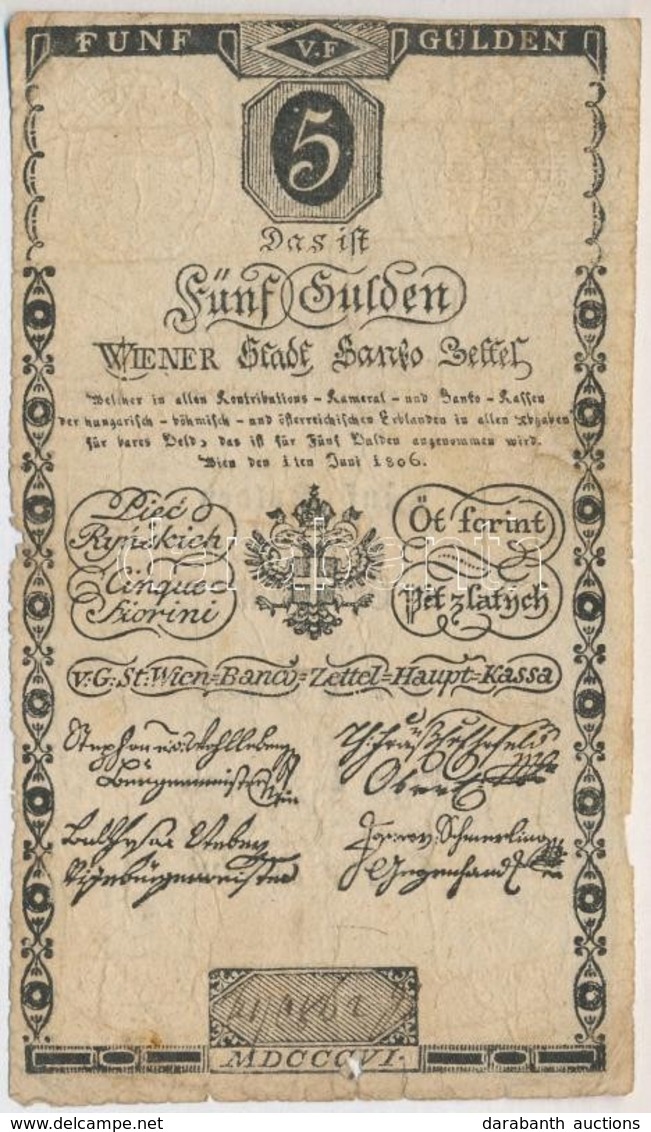 FUNF V.F GULDEN
5
Das iſt
Fünf Gulden
WIENER Stadt Banko Zettel
Welcher in allen Kontributions - Kameral - und Banko - Kassen
der hungarisch - böhmisch - und österreichischen Erblanden in allen Abgaben
für bares Geld, das ist für Fünf Gulden angenommen wird.
Wien den 1ten Juni 1806.
Pięć
Ryńskich
Cinque
Fiorini
Öt forint
Pět zlatých
v: G: St: Wien=Banco=Zettel=Haupt=Kassa
Stephan
Bürgermeister
Oberst
Balthasar
Vizebürgermeister
Schmerling
Gegenhand
MDCCCVI.
darabanth
darabanth auctions